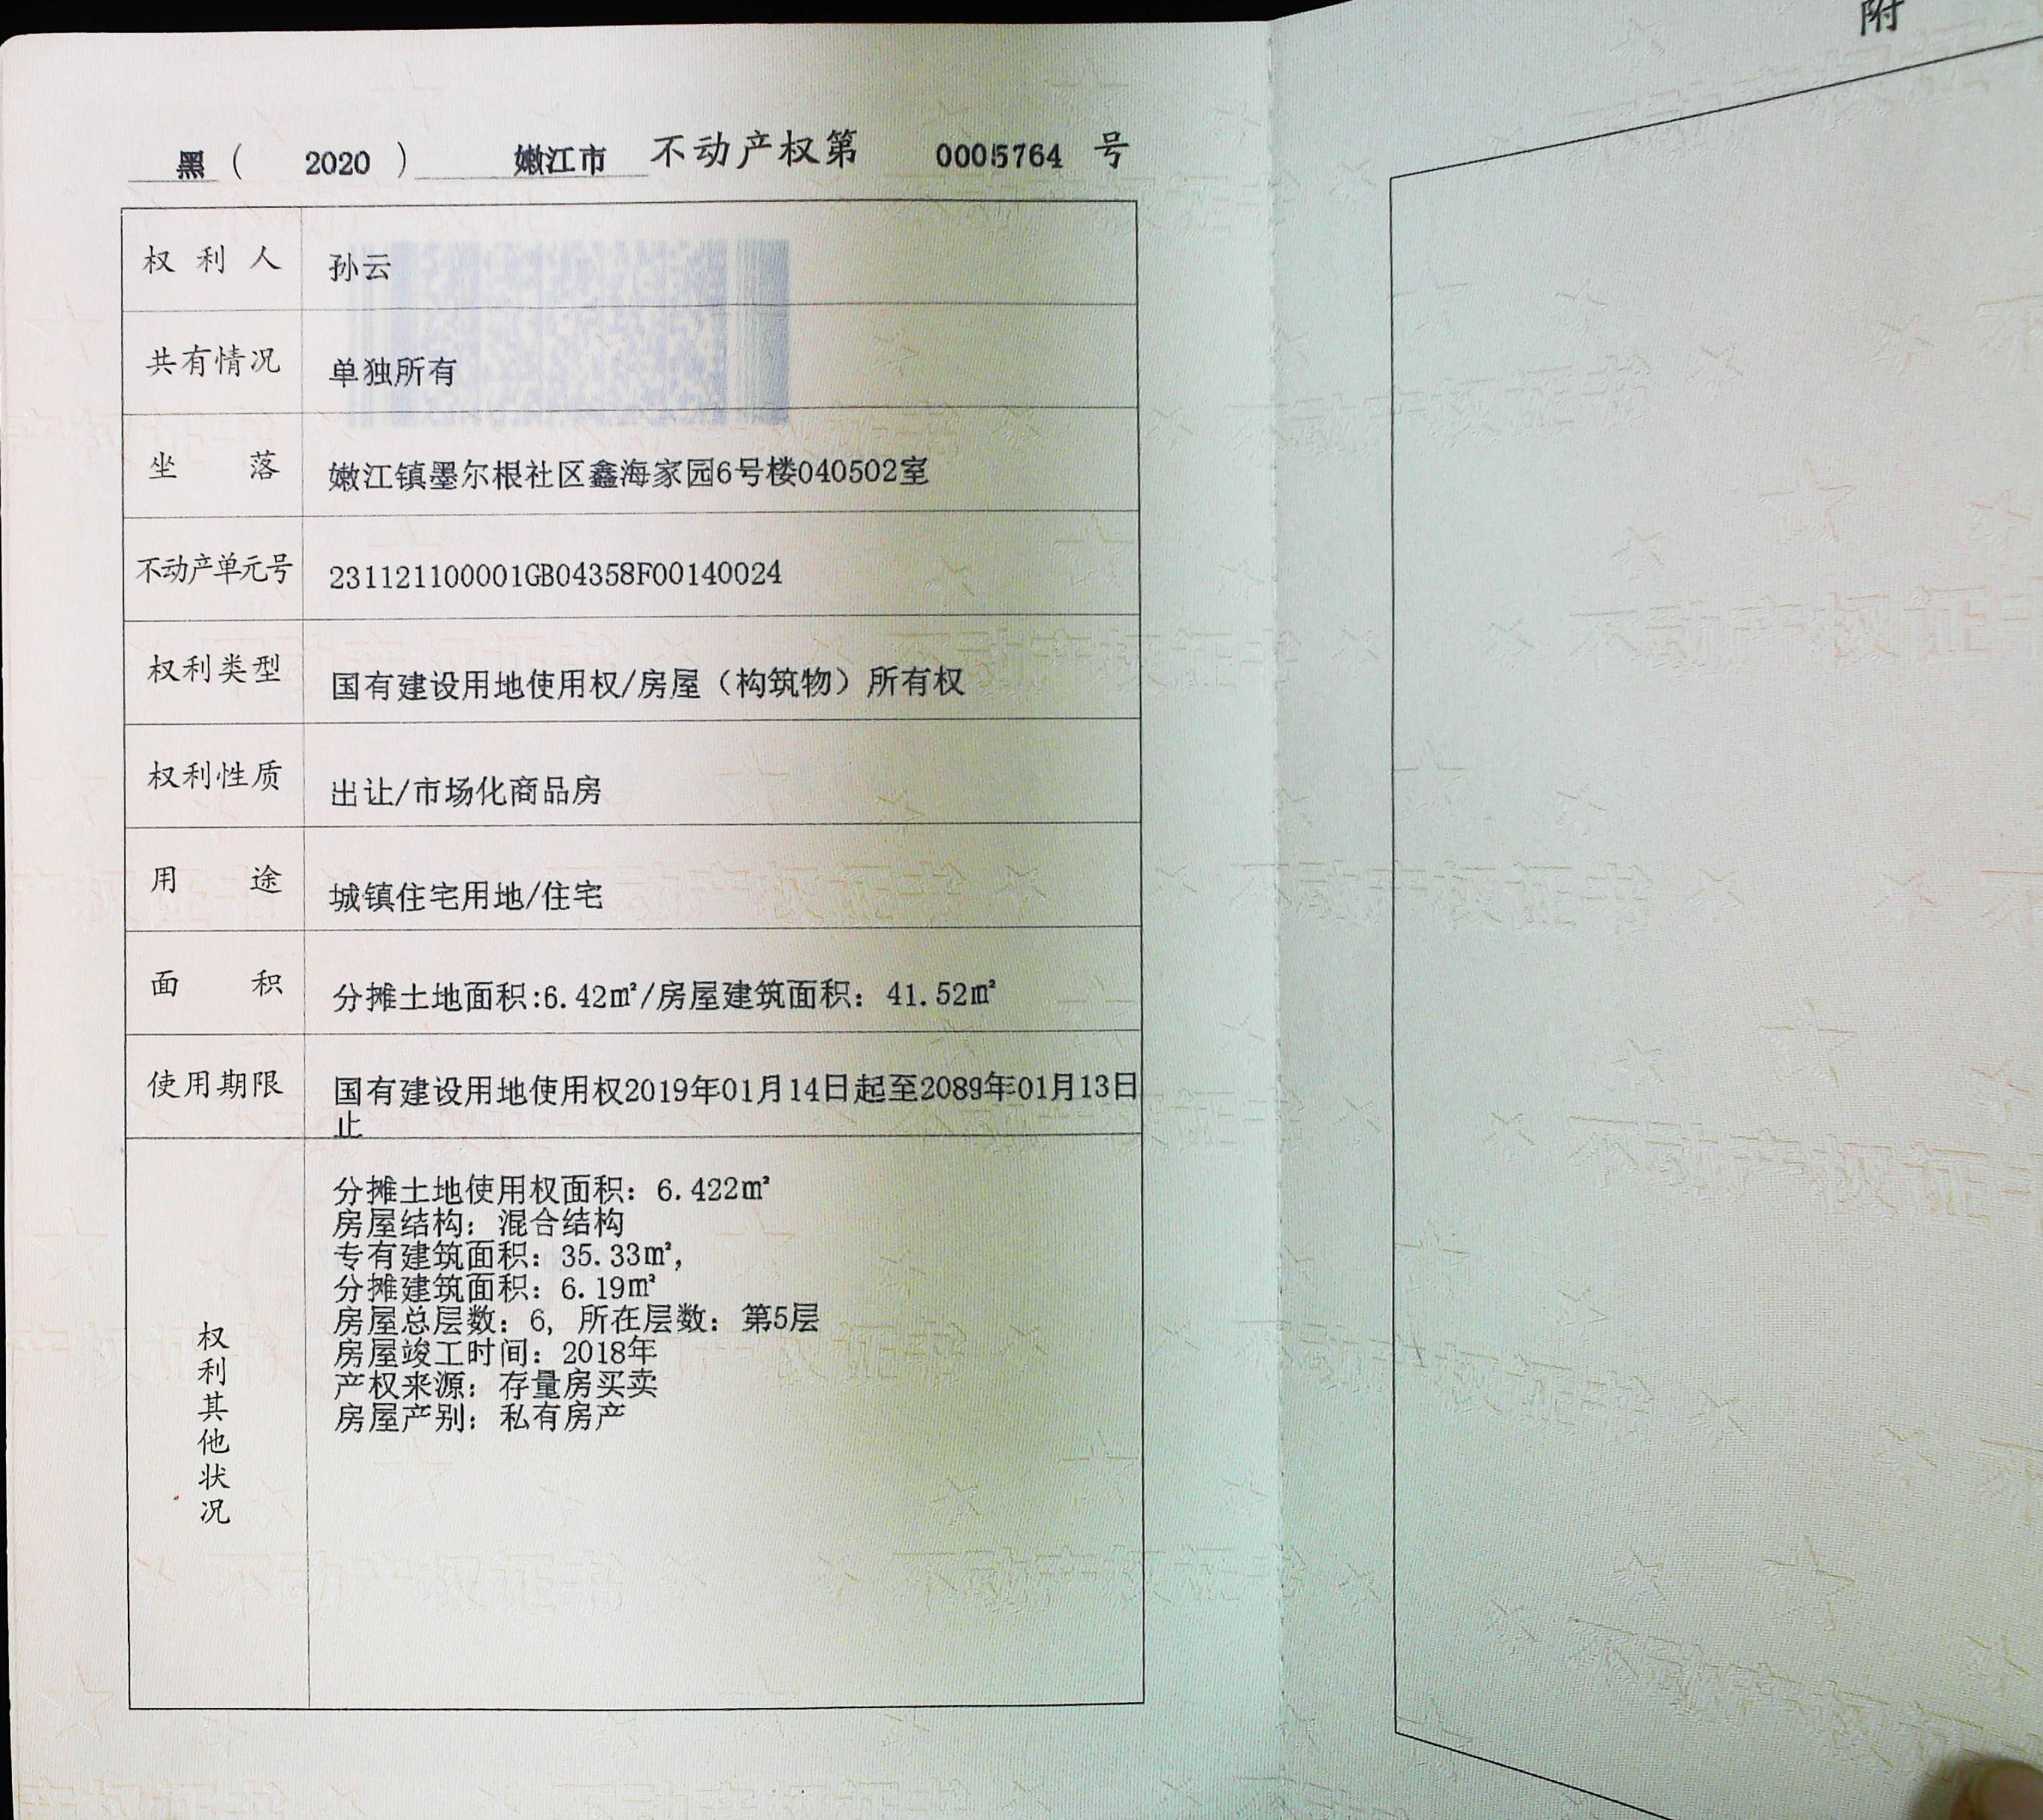 黑（ 2020 ） 嫩江市 不动产权第 0005764 号
权利人 孙云
共有情况 单独所有
坐落 嫩江镇墨尔根社区鑫海家园6号楼040502室
不动产单元号 231121100001GB04358F00140024
权利类型 国有建设用地使用权/房屋（构筑物）所有权
权利性质 出让/市场化商品房
用途 城镇住宅用地/住宅
面积 分摊土地面积:6.42㎡/房屋建筑面积：41.52㎡
使用期限 国有建设用地使用权2019年01月14日起至2089年01月13日
止
权利其他状况
分摊土地使用权面积：6.422㎡
房屋结构：混合结构
专有建筑面积：35.33㎡,
分摊建筑面积：6.19㎡
房屋总层数：6, 所在层数：第5层
房屋竣工时间：2018年
产权来源：存量房买卖
房屋产别：私有房产
附